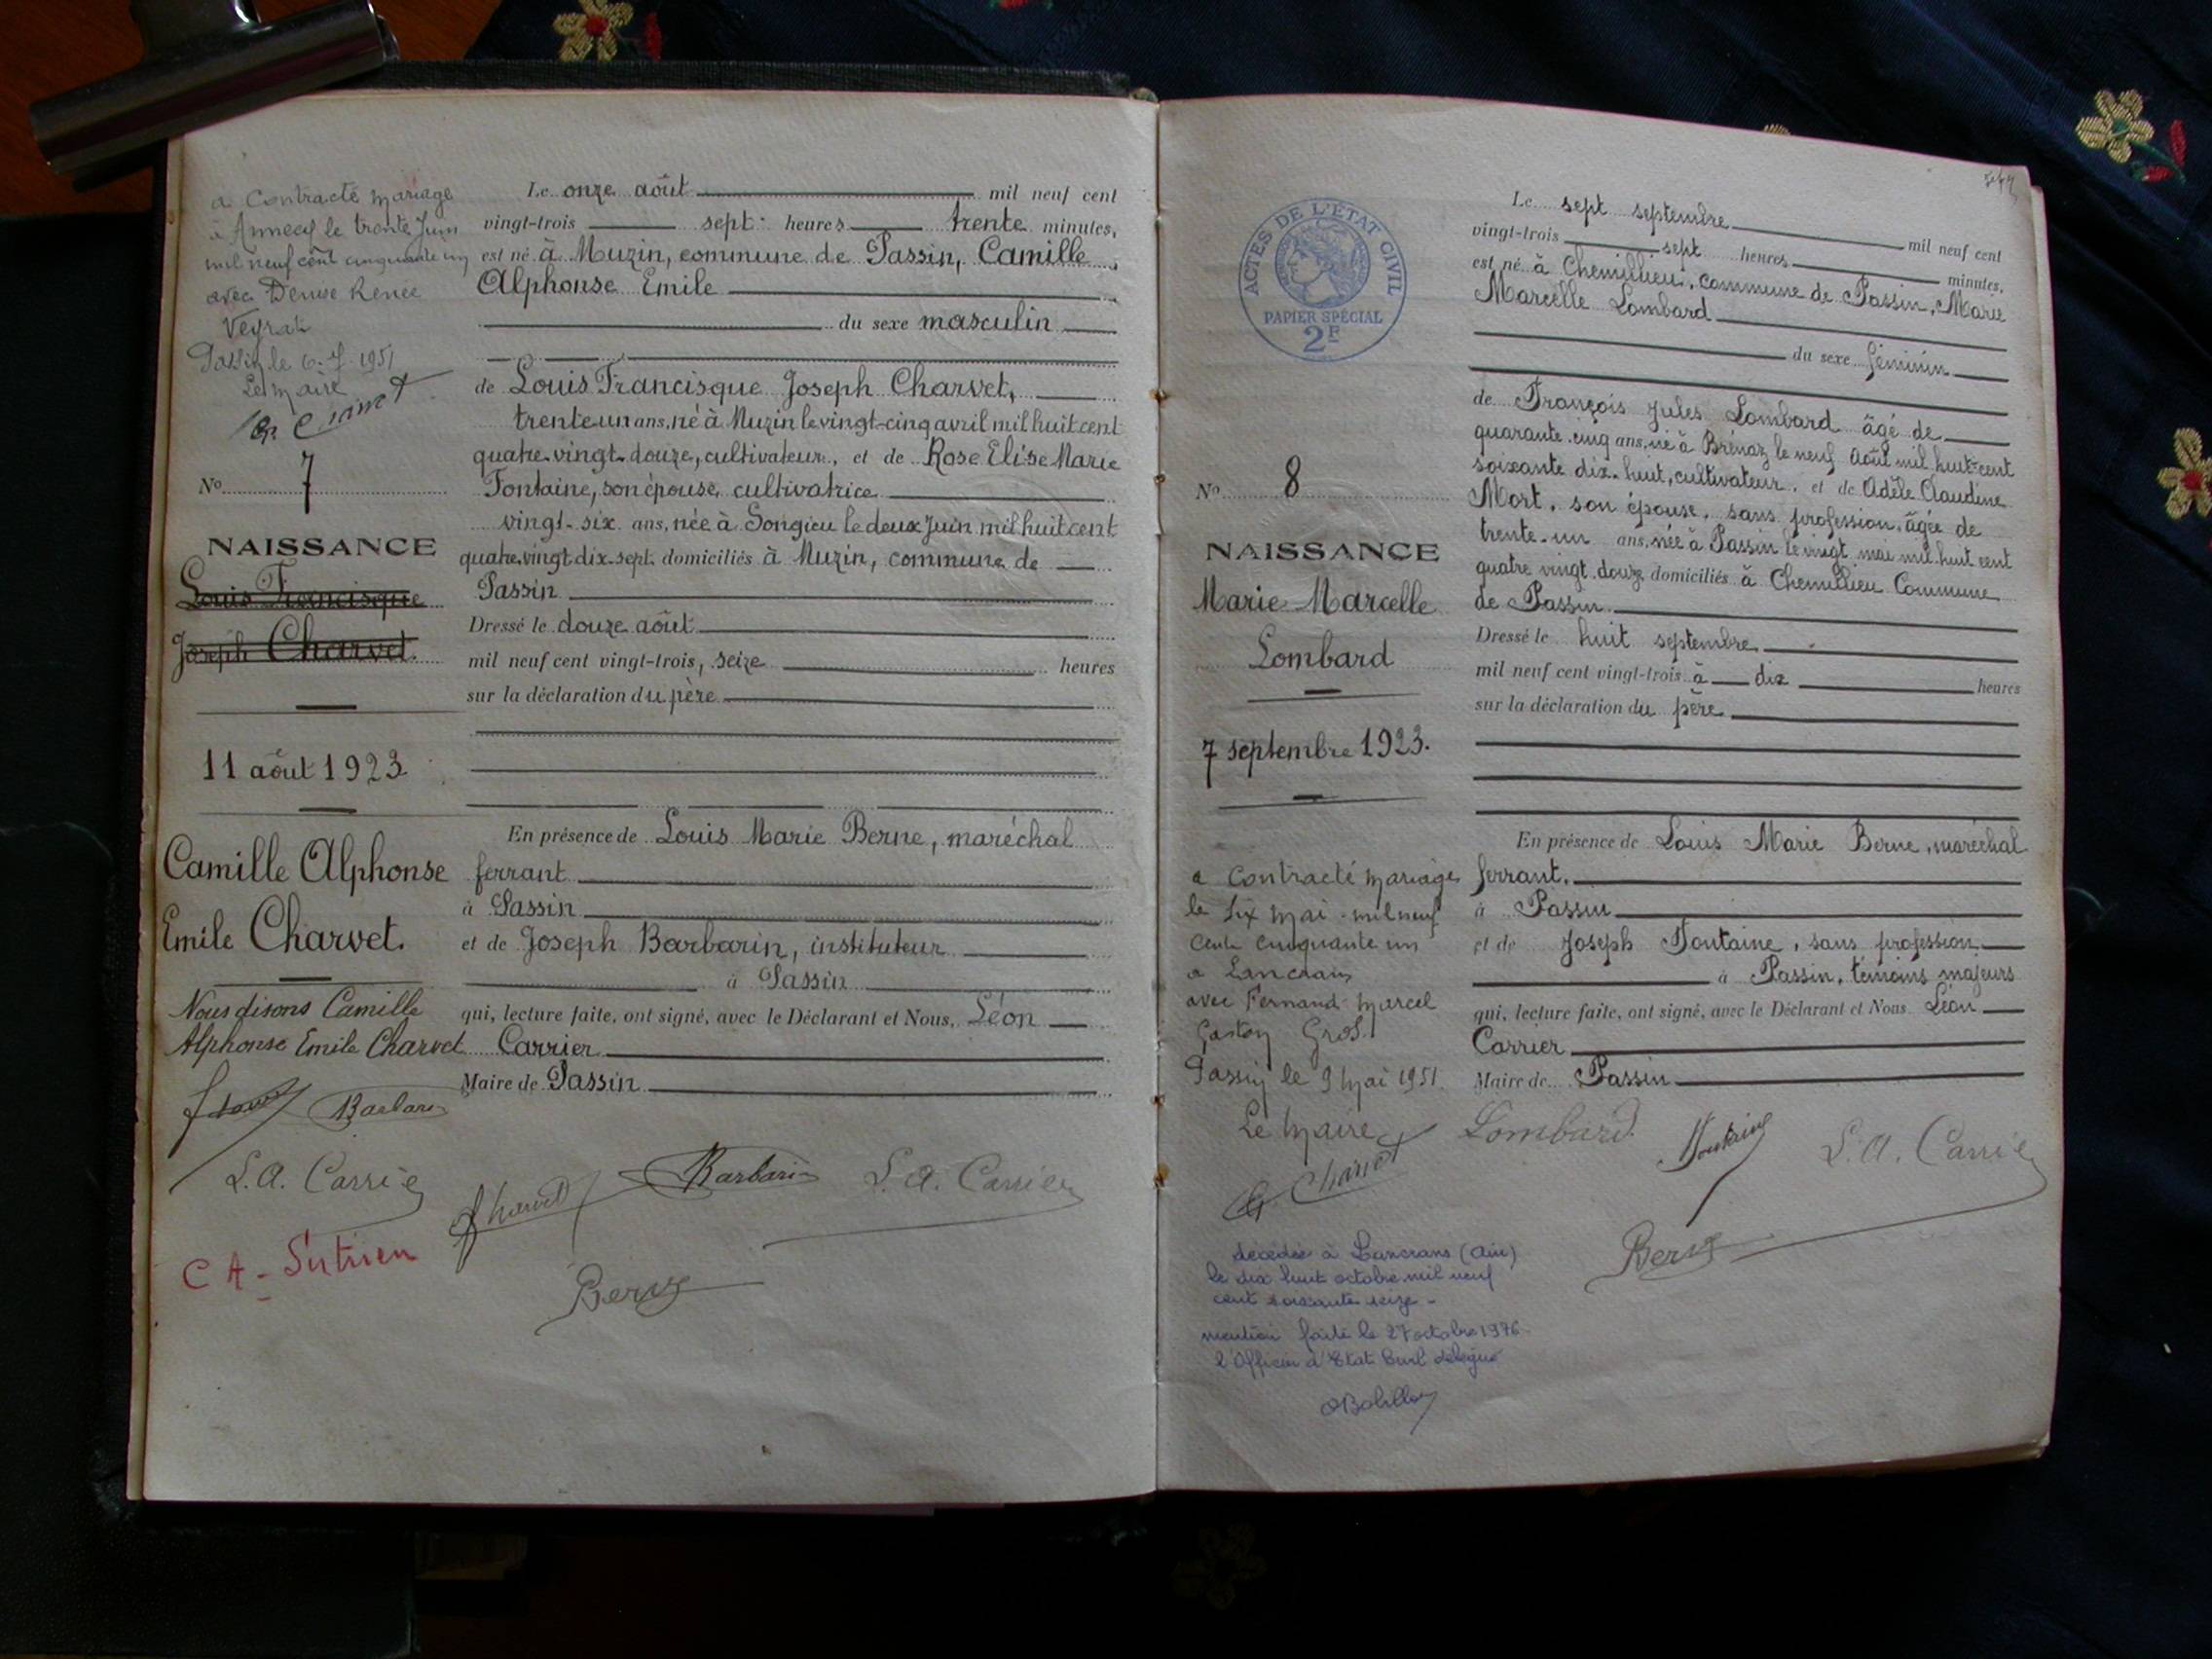 a Contracté mariage
à Annecy le trente Juin
mil neuf cent cinquante un
avec Denise Renée
Veyrat
Passin le 6-7-1951
Le Maire
Nº 7
NAISSANCE
Louis Francisque
Joseph Charvet.
11 août 1923
Camille Alphonse
Emile Charvet.
Nous disons Camille
Alphonse Emile Charvet
Barbarin
L. A. Carrier
C A -
Le onze août mil neuf cent
vingt-trois sept heures trente minutes,
est né à Muzin, commune de Passin, Camille
Alphonse Emile
du sexe masculin
de Louis Francisque Joseph Charvet,
trente un ans, né à Muzin le vingt-cinq avril mil huit cent
quatre vingt douze, cultivateur, et de Rose Elise Marie
Fontaine, son épouse, cultivatrice
vingt-six ans, née à Songieu le deux Juin mil huit cent
quatre vingt dix-sept domiciliés à Muzin, commune de
Passin
Dressé le douze août
mil neuf cent vingt-trois, seize heures
sur la déclaration du père
En présence de Louis Marie Berne, maréchal
ferrant
à Passin
et de Joseph Barbarin, instituteur
à Passin
qui, lecture faite, ont signé, avec le Déclarant et Nous, Léon
Carrier
Maire de Passin
Charvet Barbarin L. A. Carrier
Berne
ACTES DE L'ÉTAT CIVIL
PAPIER SPÉCIAL
2F
Nº 8
NAISSANCE
Marie Marcelle
Lombard
7 septembre 1923.
a Contracté mariage
le six mai mil neuf
cent cinquante un
a Lancrans
avec Fernand Marcel
Gaston Gros
Passin le 9 Mai 1951.
Le Maire
Charvet
décédée à Lancrans (Ain)
le dix huit octobre mil neuf
cent soixante seize -
mention faite le 27 octobre 1976
l'Officier d'Etat Civil délégué
Le sept septembre mil neuf cent
vingt-trois sept heures minutes,
est né à Chemillieu, commune de Passin, Marie
Marcelle Lombard
du sexe féminin
de François Jules Lombard âgé de
quarante cinq ans, né à Brénaz le neuf Août mil huit cent
soixante dix-huit, cultivateur, et de Adèle Claudine
Mort, son épouse, sans profession, âgée de
trente-un ans, née à Passin le vingt mai mil huit cent
quatre vingt douze domiciliés à Chemillieu Commune
de Passin.
Dressé le huit septembre
mil neuf cent vingt-trois à dix heures
sur la déclaration du père
En présence de Louis Marie Berne, maréchal
ferrant,
à Passin
et de Joseph Fontaine, sans profession
à Passin, témoins majeurs
qui, lecture faite, ont signé, avec le Déclarant et Nous Léon
Carrier
Maire de Passin
Lombard Fontaine L. A. Carrier
Berne